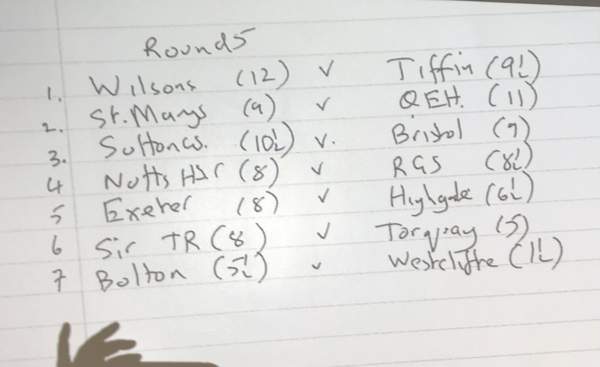 Round 5
1. Wilsons (12) v Tiffin (9½)
2. St. Marys (9) v QEH. (11)
3. Sutton GS. (10½) v. Bristol (9)
4 Notts HS (8) v RGS (8½)
5 Exeter (8) v Highgate (6½)
6 Sir TR (8) v Torquay (5)
7 Bolton (5½) v Westcliffe (1½)